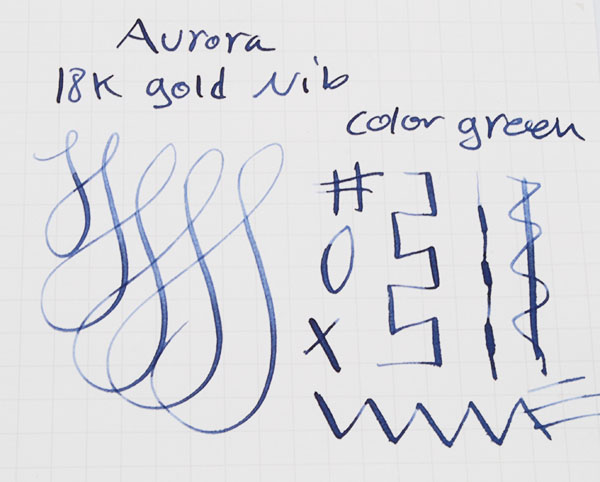 Aurora
18K gold Nib
color green
# 
O
X